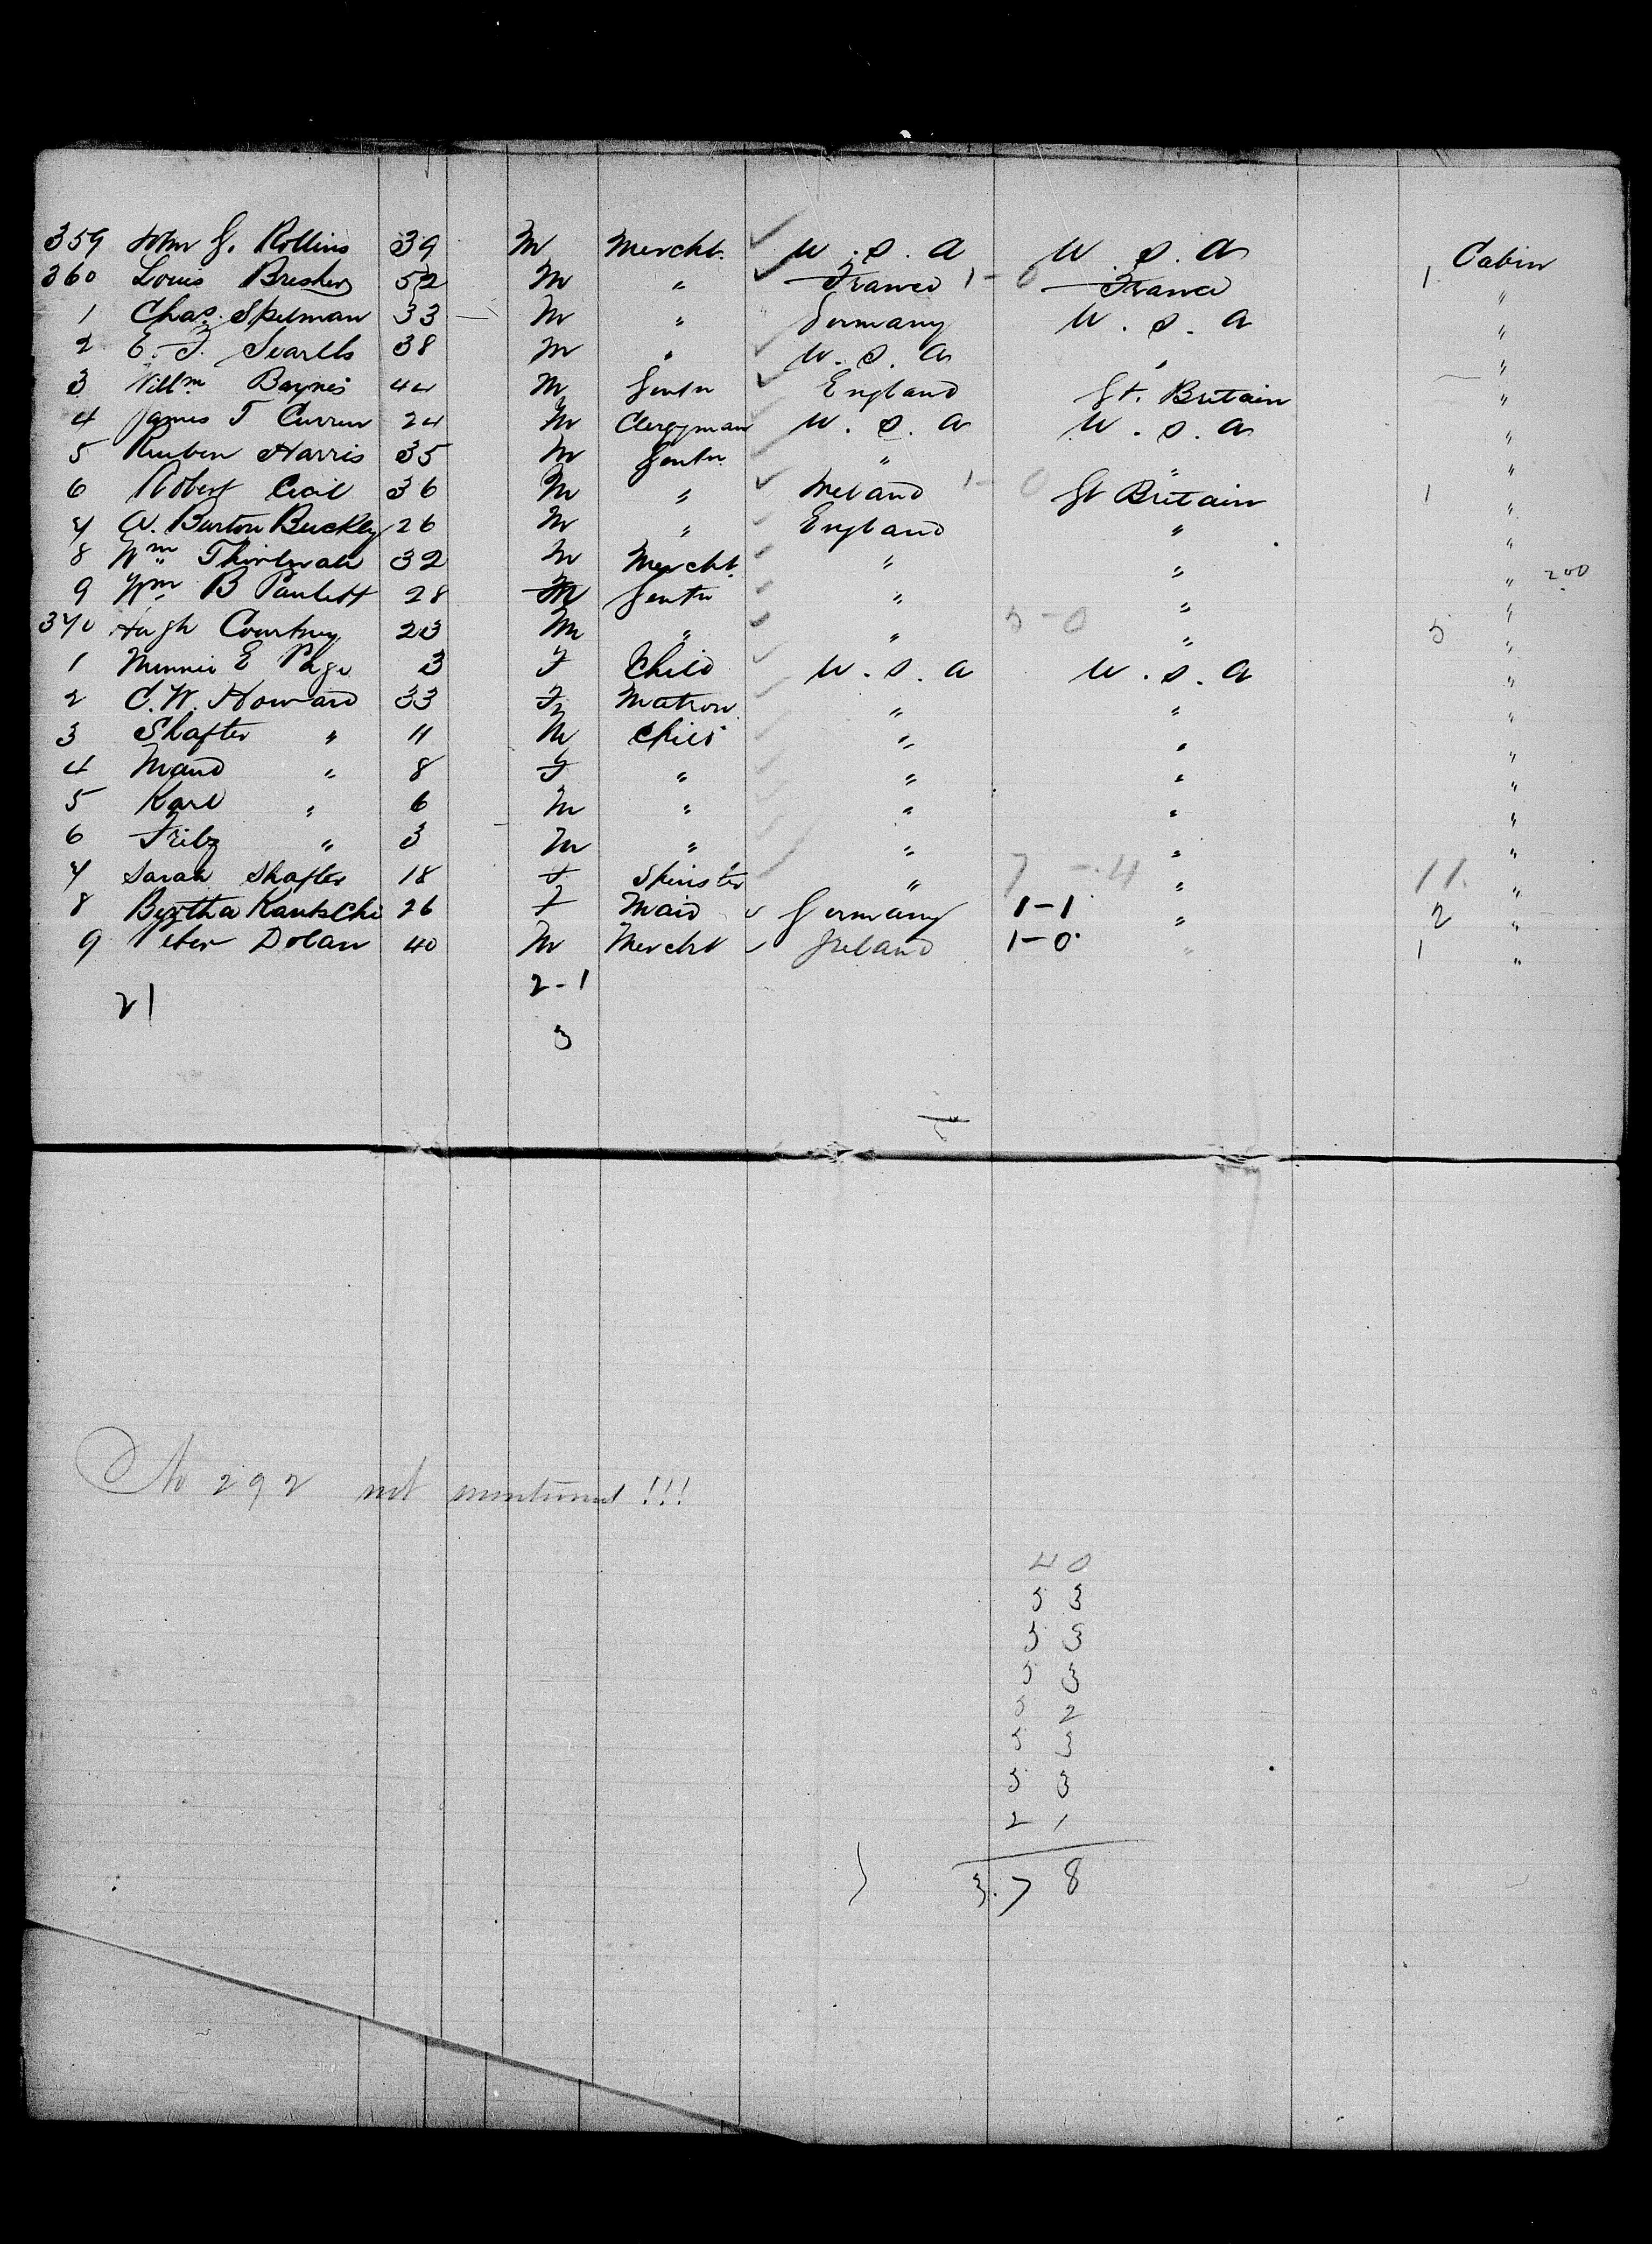 359 John G. Rollins 39 M Mercht. U.S.A U.S.A Cabin
360 Louis 52 M " France 1-0 France 1 "
1 Chas. Spelman 33 M " Germany U.S.A "
2 E. F. Searlls 38 M " U.S.A " "
3 Willm Baynes 44 M Gentn England Gt. Britain "
4 James T Curren 24 M Clergyman U.S.A U.S.A "
5 Reuben Harris 35 M Gentn " " "
6 Robert Cecil 36 M " Ireland 1-0 Gt Britain 1 "
7 W. Burton Buckley 26 M " England " "
8 Wm Thirlwall 32 M Mercht. " " " 200
9 Wm B Paulett 28 M Gentn " " "
370 Hugh Courtney 23 M " " 5-0 " 5 "
1 Minnie E Page 3 F Child U.S.A U.S.A "
2 C.W. Howard 33 F Matron " " "
3 Shafter " 11 M Child " " "
4 Maud " 8 F " " " "
5 Karl " 6 M " " " "
6 Fritz " 3 M " " " "
7 Sarah Shafter 18 F Spinster " 7-4 " 11. "
8 Bertha Kautschi 26 F Maid Germany 1-1 " 2 "
9 Peter Dolan 40 M Mercht Ireland 1-0 " 1 "
21 2-1
3
No 292 not mentioned !!!
40
53
53
53
52
53
53
21
378